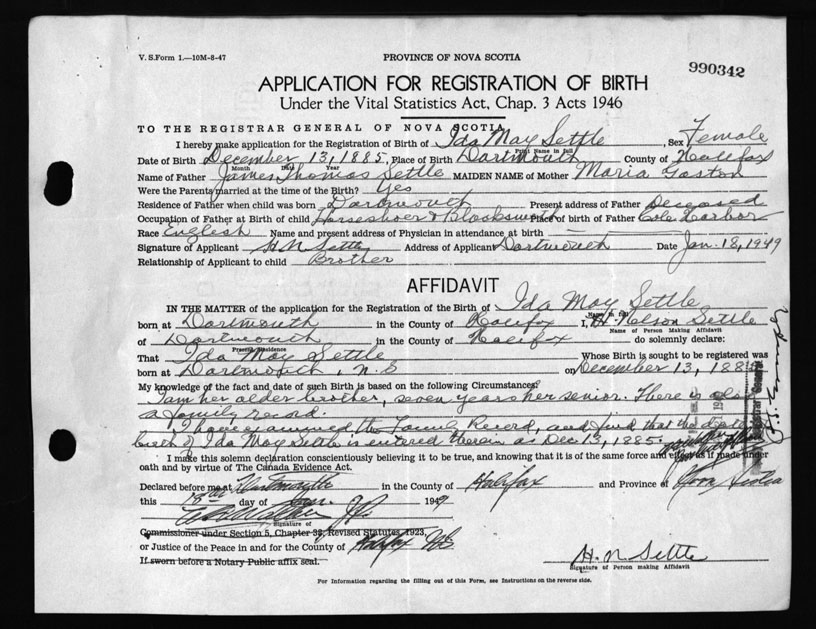 V. S. Form 1.—10M-8-47
PROVINCE OF NOVA SCOTIA
990342
APPLICATION FOR REGISTRATION OF BIRTH
Under the Vital Statistics Act, Chap. 3 Acts 1946
TO THE REGISTRAR GENERAL OF NOVA SCOTIA
I hereby make application for the Registration of Birth of Ida May Settle, Sex Female
Print Name in full
Date of Birth December 13, 1885, Place of Birth Dartmouth County of Halifax
Month Date Year
Name of Father James Thomas Settle MAIDEN NAME of Mother Maria Gaston
Were the Parents married at the time of the Birth? Yes
Residence of Father when child was born Dartmouth Present address of Father Deceased
Occupation of Father at Birth of child Horseshoer & Blacksmith Place of birth of Father Cole Harbor
Race English Name and present address of Physician in attendance at birth —
Signature of Applicant H N Settle Address of Applicant Dartmouth Date Jan. 18, 1949
Relationship of Applicant to child Brother
AFFIDAVIT
IN THE MATTER of the application for the Registration of the Birth of Ida May Settle
Name in full
born at Dartmouth in the County of Halifax I, H. Nelson Settle
Name of Person Making Affidavit
of Dartmouth in the County of Halifax do solemnly declare:
Present Residence
That Ida May Settle Whose Birth is sought to be registered was
born at Dartmouth, N.S on December 13, 1885
My knowledge of the fact and date of such Birth is based on the following Circumstances:
I am her older brother, seven years her senior. There is also
a family record.
I have examined the Family Record, and find that the date
birth of Ida May Settle is entered therein as Dec 13, 1885.
I make this solemn declaration conscientiously believing it to be true, and knowing that it is of the same force and effect as if made under
oath and by virtue of The Canada Evidence Act.
Declared before me at Dartmouth in the County of Halifax and Province of Nova Scotia
this day of Jan. 1949
J.P.
Signature of
Commissioner under Section 5, Chapter 38, Revised Statutes 1923,
or Justice of the Peace in and for the County of Halifax NS
If sworn before a Notary Public affix seal.
H. N Settle
Signature of Person making Affidavit
For Information regarding the filling out of this Form, see Instructions on the reverse side.